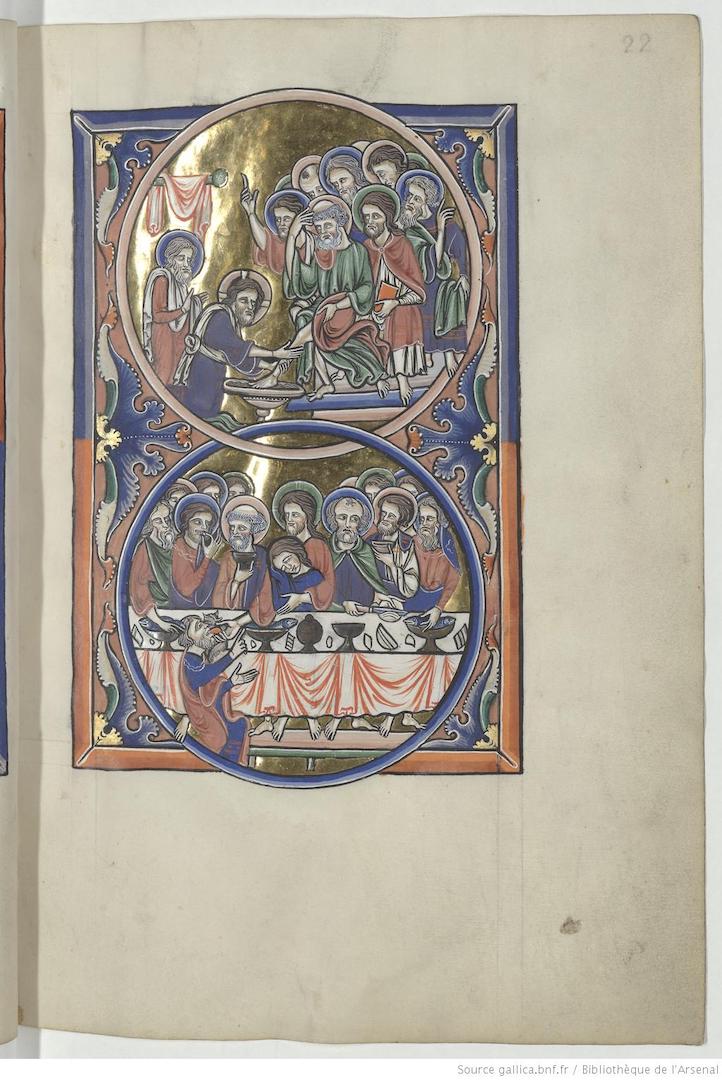 22
Source gallica.bnf.fr / Bibliothèque de l'Arsenal